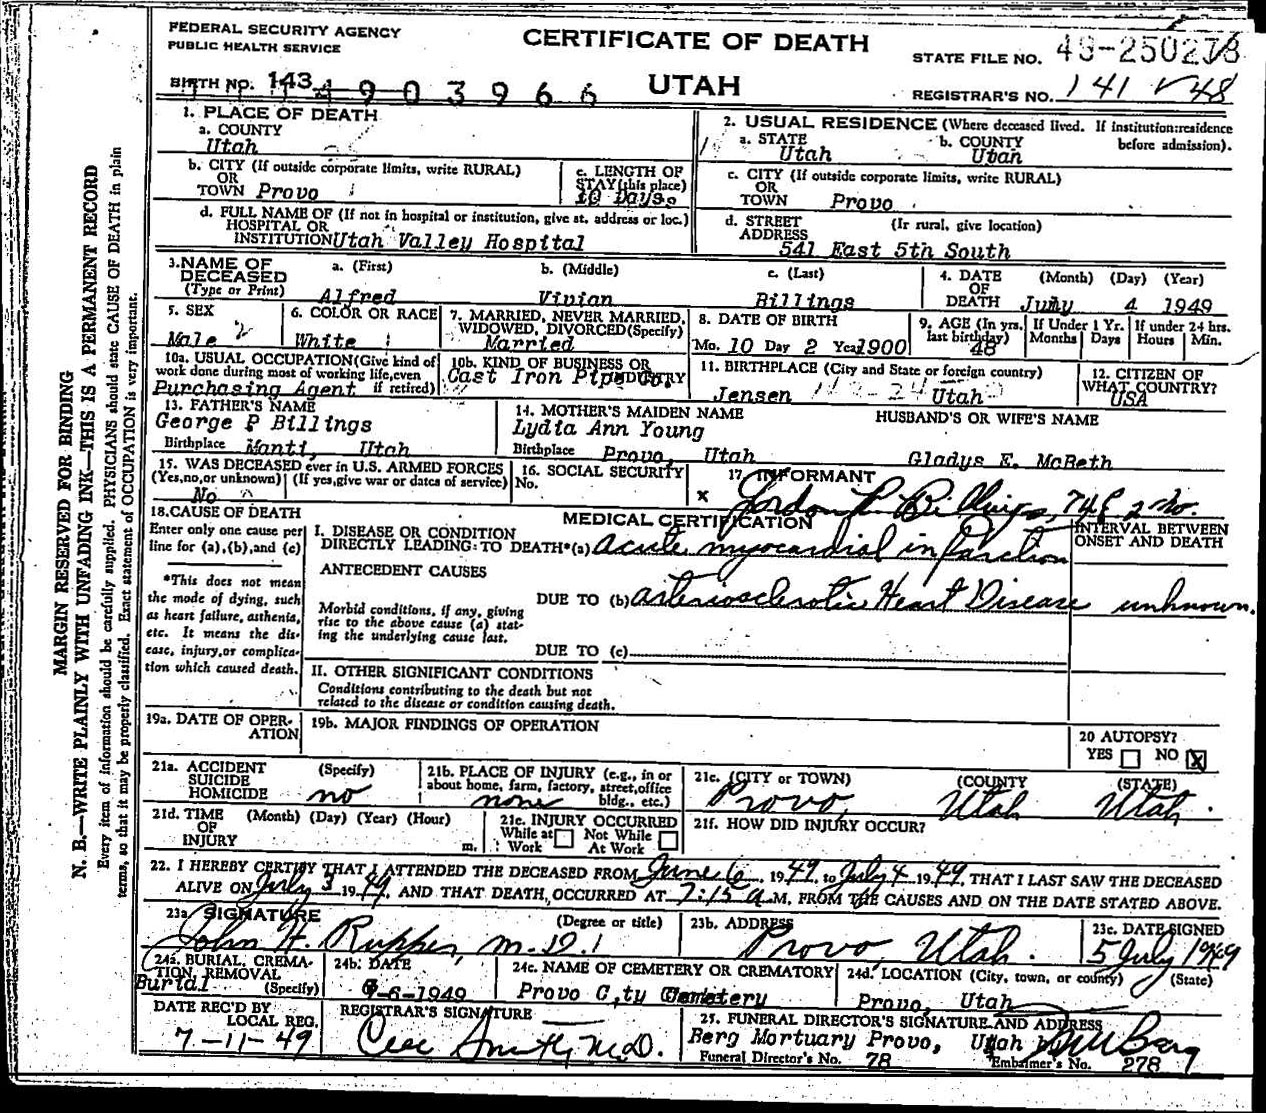 FEDERAL SECURITY AGENCY
PUBLIC HEALTH SERVICE
CERTIFICATE OF DEATH
UTAH
STATE FILE NO. 49-250278
BIRTH NO. 143 4903966
REGISTRAR'S NO. 141 48
1. PLACE OF DEATH
a. COUNTY
Utah
2. USUAL RESIDENCE (Where deceased lived. If institution:residence before admission).
a. STATE b. COUNTY
Utah Utah
b. CITY (If outside corporate limits, write RURAL)
OR
TOWN Provo
c. LENGTH OF
STAY (this place)
10 Days.
c. CITY (If outside corporate limits, write RURAL)
OR
TOWN Provo
d. FULL NAME OF (If not in hospital or institution, give st. address or loc.)
HOSPITAL OR
INSTITUTION Utah Valley Hospital
d. STREET (If rural, give location)
ADDRESS
541 East 5th South
3. NAME OF DECEASED
(Type or Print)
a. (First) b. (Middle) c. (Last)
Alfred Vivian Billings
4. DATE OF DEATH (Month) (Day) (Year)
July 4 1949
5. SEX
Male 2
6. COLOR OR RACE
White
7. MARRIED, NEVER MARRIED,
WIDOWED, DIVORCED(Specify)
Married
8. DATE OF BIRTH
Mo. 10 Day 2 Year 1900
9. AGE (In yrs. last birthday)
48
If Under 1 Yr. Months Days
If under 24 hrs. Hours Min.
10a. USUAL OCCUPATION(Give kind of
work done during most of working life,even
Purchasing Agent if retired)
10b. KIND OF BUSINESS OR INDUSTRY
Cast Iron Pipe Co.
11. BIRTHPLACE (City and State or foreign country)
Jensen Utah
12. CITIZEN OF
WHAT COUNTRY?
USA
13. FATHER'S NAME
George P Billings
Birthplace Manti, Utah
14. MOTHER'S MAIDEN NAME
Lydia Ann Young
Birthplace Provo, Utah
HUSBAND'S OR WIFE'S NAME
Gladys E. McBeth
15. WAS DECEASED ever in U.S. ARMED FORCES
(Yes,no,or unknown) (If yes,give war or dates of service)
No
16. SOCIAL SECURITY
No.
17. INFORMANT
x Gordon R Billings, 74 E 2 No.
18. CAUSE OF DEATH
Enter only one cause per
line for (a),(b),and (c)
*This does not mean
the mode of dying, such
as heart failure, asthenia,
etc. It means the dis-
ease, injury,or complica-
tion which caused death.
MEDICAL CERTIFICATION
INTERVAL BETWEEN
ONSET AND DEATH
I. DISEASE OR CONDITION
DIRECTLY LEADING TO DEATH*(a) acute myocardial infarction
ANTECEDENT CAUSES
Morbid conditions, if any, giving
rise to the above cause (a) stat-
ing the underlying cause last.
DUE TO (b) arteriosclerotic Heart Disease unknown.
DUE TO (c)
II. OTHER SIGNIFICANT CONDITIONS
Conditions contributing to the death but not
related to the disease or condition causing death.
19a. DATE OF OPER-
ATION
19b. MAJOR FINDINGS OF OPERATION
20 AUTOPSY?
YES NO X
21a. ACCIDENT (Specify)
SUICIDE
HOMICIDE no
21b. PLACE OF INJURY (e.g., in or
about home, farm, factory, street,office
bldg., etc.)
none
21c. (CITY or TOWN) (COUNTY (STATE)
Provo, Utah Utah.
21d. TIME (Month) (Day) (Year) (Hour)
OF
INJURY m.
21e. INJURY OCCURRED
While at Work Not While At Work
21f. HOW DID INJURY OCCUR?
22. I HEREBY CERTIFY THAT I ATTENDED THE DECEASED FROM June 6, 1949, to July 4 1949, THAT I LAST SAW THE DECEASED
ALIVE ON July 3 1949, AND THAT DEATH, OCCURRED AT 7:15 a.M. FROM THE CAUSES AND ON THE DATE STATED ABOVE.
23a. SIGNATURE (Degree or title)
John H. Rupper, M.D.
23b. ADDRESS
Provo, Utah.
23c. DATE SIGNED
5 July 1949
24a. BURIAL, CREMA-
TION, REMOVAL
Burial (Specify)
24b. DATE
7-6-1949
24c. NAME OF CEMETERY OR CREMATORY
Provo City Cemetery
24d. LOCATION (City, town, or county) (State)
Provo, Utah
DATE REC'D BY
LOCAL REG.
7-11-49
REGISTRAR'S SIGNATURE
Smith, M.D.
25. FUNERAL DIRECTOR'S SIGNATURE AND ADDRESS
Berg Mortuary Provo, Utah Berg
Funeral Director's No. 78
Embalmer's No. 278
MARGIN RESERVED FOR BINDING
N. B.—WRITE PLAINLY WITH UNFADING INK—THIS IS A PERMANENT RECORD
Every item of information should be carefully supplied. PHYSICIANS should state CAUSE OF DEATH in plain
terms, so that it may be properly classified. Exact statement of OCCUPATION is very important.